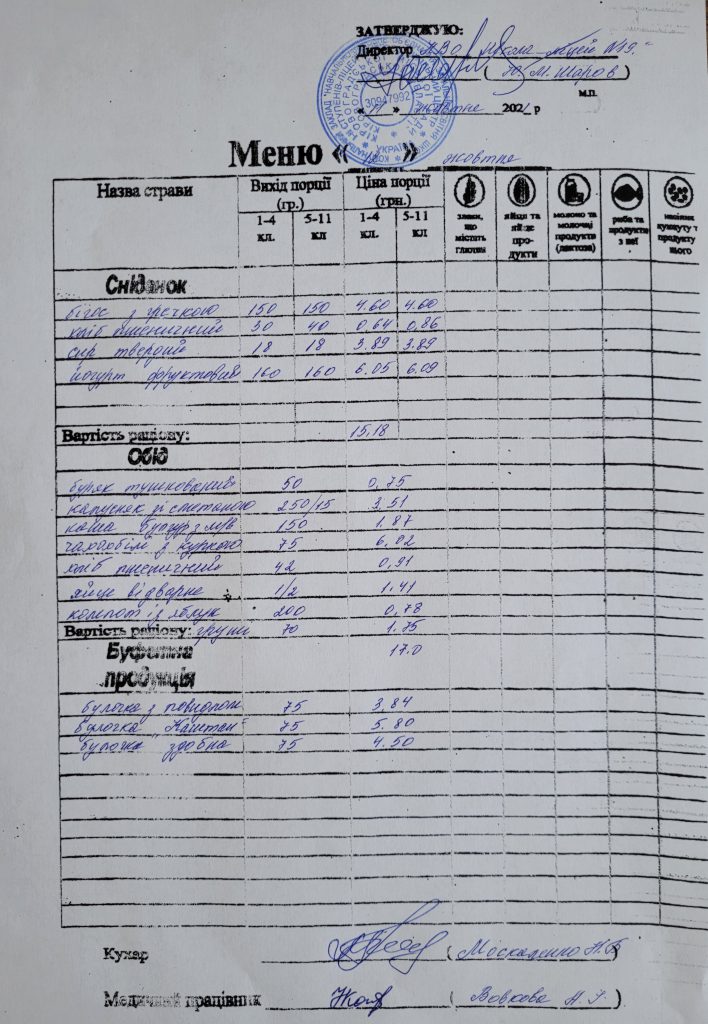 ЗАТВЕРДЖУЮ:
Директор КЗО "Школа-ліцей №19."
( Ю.М. Шаров )
м.п.
« 11 » жовтня 2021 р
30947992
УКРАЇНА
Меню « » жовтня
Назва страви Вихід порції (гр.) Ціна порції (грн.)
1-4 кл. 5-11 кл 1-4 кл. 5-11 кл
злаки, що містять глютен
яйця та яйце продукти
молоко та молочні продукти (лактоза)
риба та продукти з неї
насіння кунжуту т продукту нього
Сніданок
бігос з гречкою 150 150 4.60 4.60
хліб пшеничний 30 40 0,64 0,86
сир твердий 18 18 3.89 3.89
йогурт фруктовий 160 160 6.05 6,09
Вартість раціону: 15,18
Обід
буряк тушкований 50 0,75
капусняк зі сметаною 250/15 3.51
каша булгур з м/в 150 1.87
чахохбілі з куркою 75 6,02
хліб пшеничний 42 0,91
яйце відварне 1/2 1.41
компот із яблук 200 0,78
Вартість раціону: груши 70 1.75
Буфетна 17.0
продукція
булочка з повидлом 75 3,84
булочка "Каштан" 75 5,80
булочка здобна 75 4.50
Кухар ( Москаленко Н.В )
Медичний працівник ( Вовкова Н.І. )